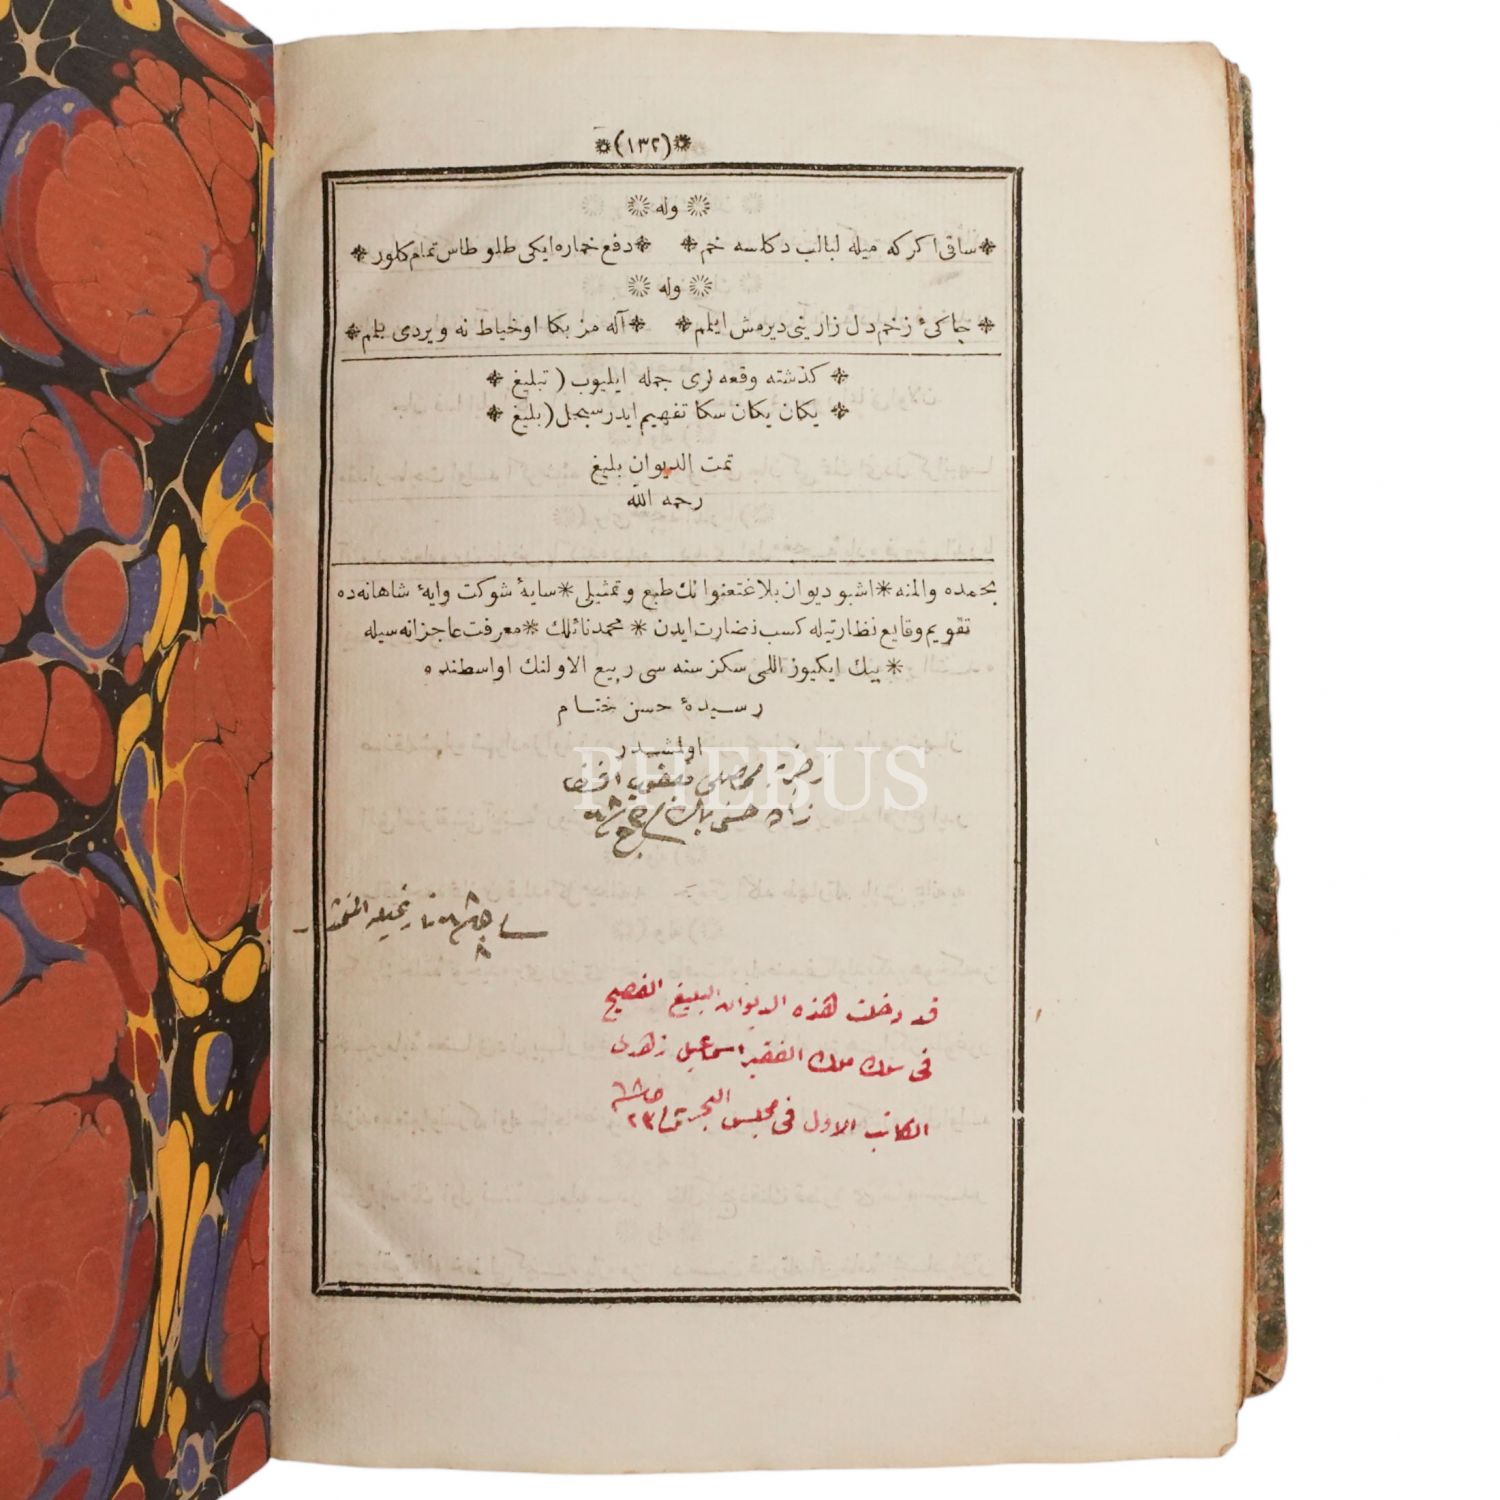 (١٣٢)
وله
ساقی اكركه میله لبالب دكاسه خم دفع خماره ایكی طلو طاس تمام كلور
وله
چاكیٔ زخم دل زارینی دیره‌ش ایلم آله مز بكا اوخیاط نه ویردی بلم
كذشته وقعه لری جمله ایلیوب (تبلیغ
یكان یكان سكا تفهیم ایدر سجل (بلیغ
تمت الدیوان بلیغ
رحمه الله
بحمده والمنه اشبو دیوان بلاغتعنوانك طبع و تمثیلی سایهٔ شوكت وایهٔ شاهانه ده
تقویم وقایع نظارتیله كسب نضارت ایدن محمد نائلك معرفت عاجزانه سیله
بیك ایكیوز اللی سكز سنه سی ربیع الاولنك اواسطنده
رسیدهٔ حسن ختام
اولمشدر
PHEBUS
قد دخلت هذه الدیوان البلیغ الفصیح
فی سلك ملك الفقیر اسماعیل زهدی
الكاتب الاول فی مجلس البحریه